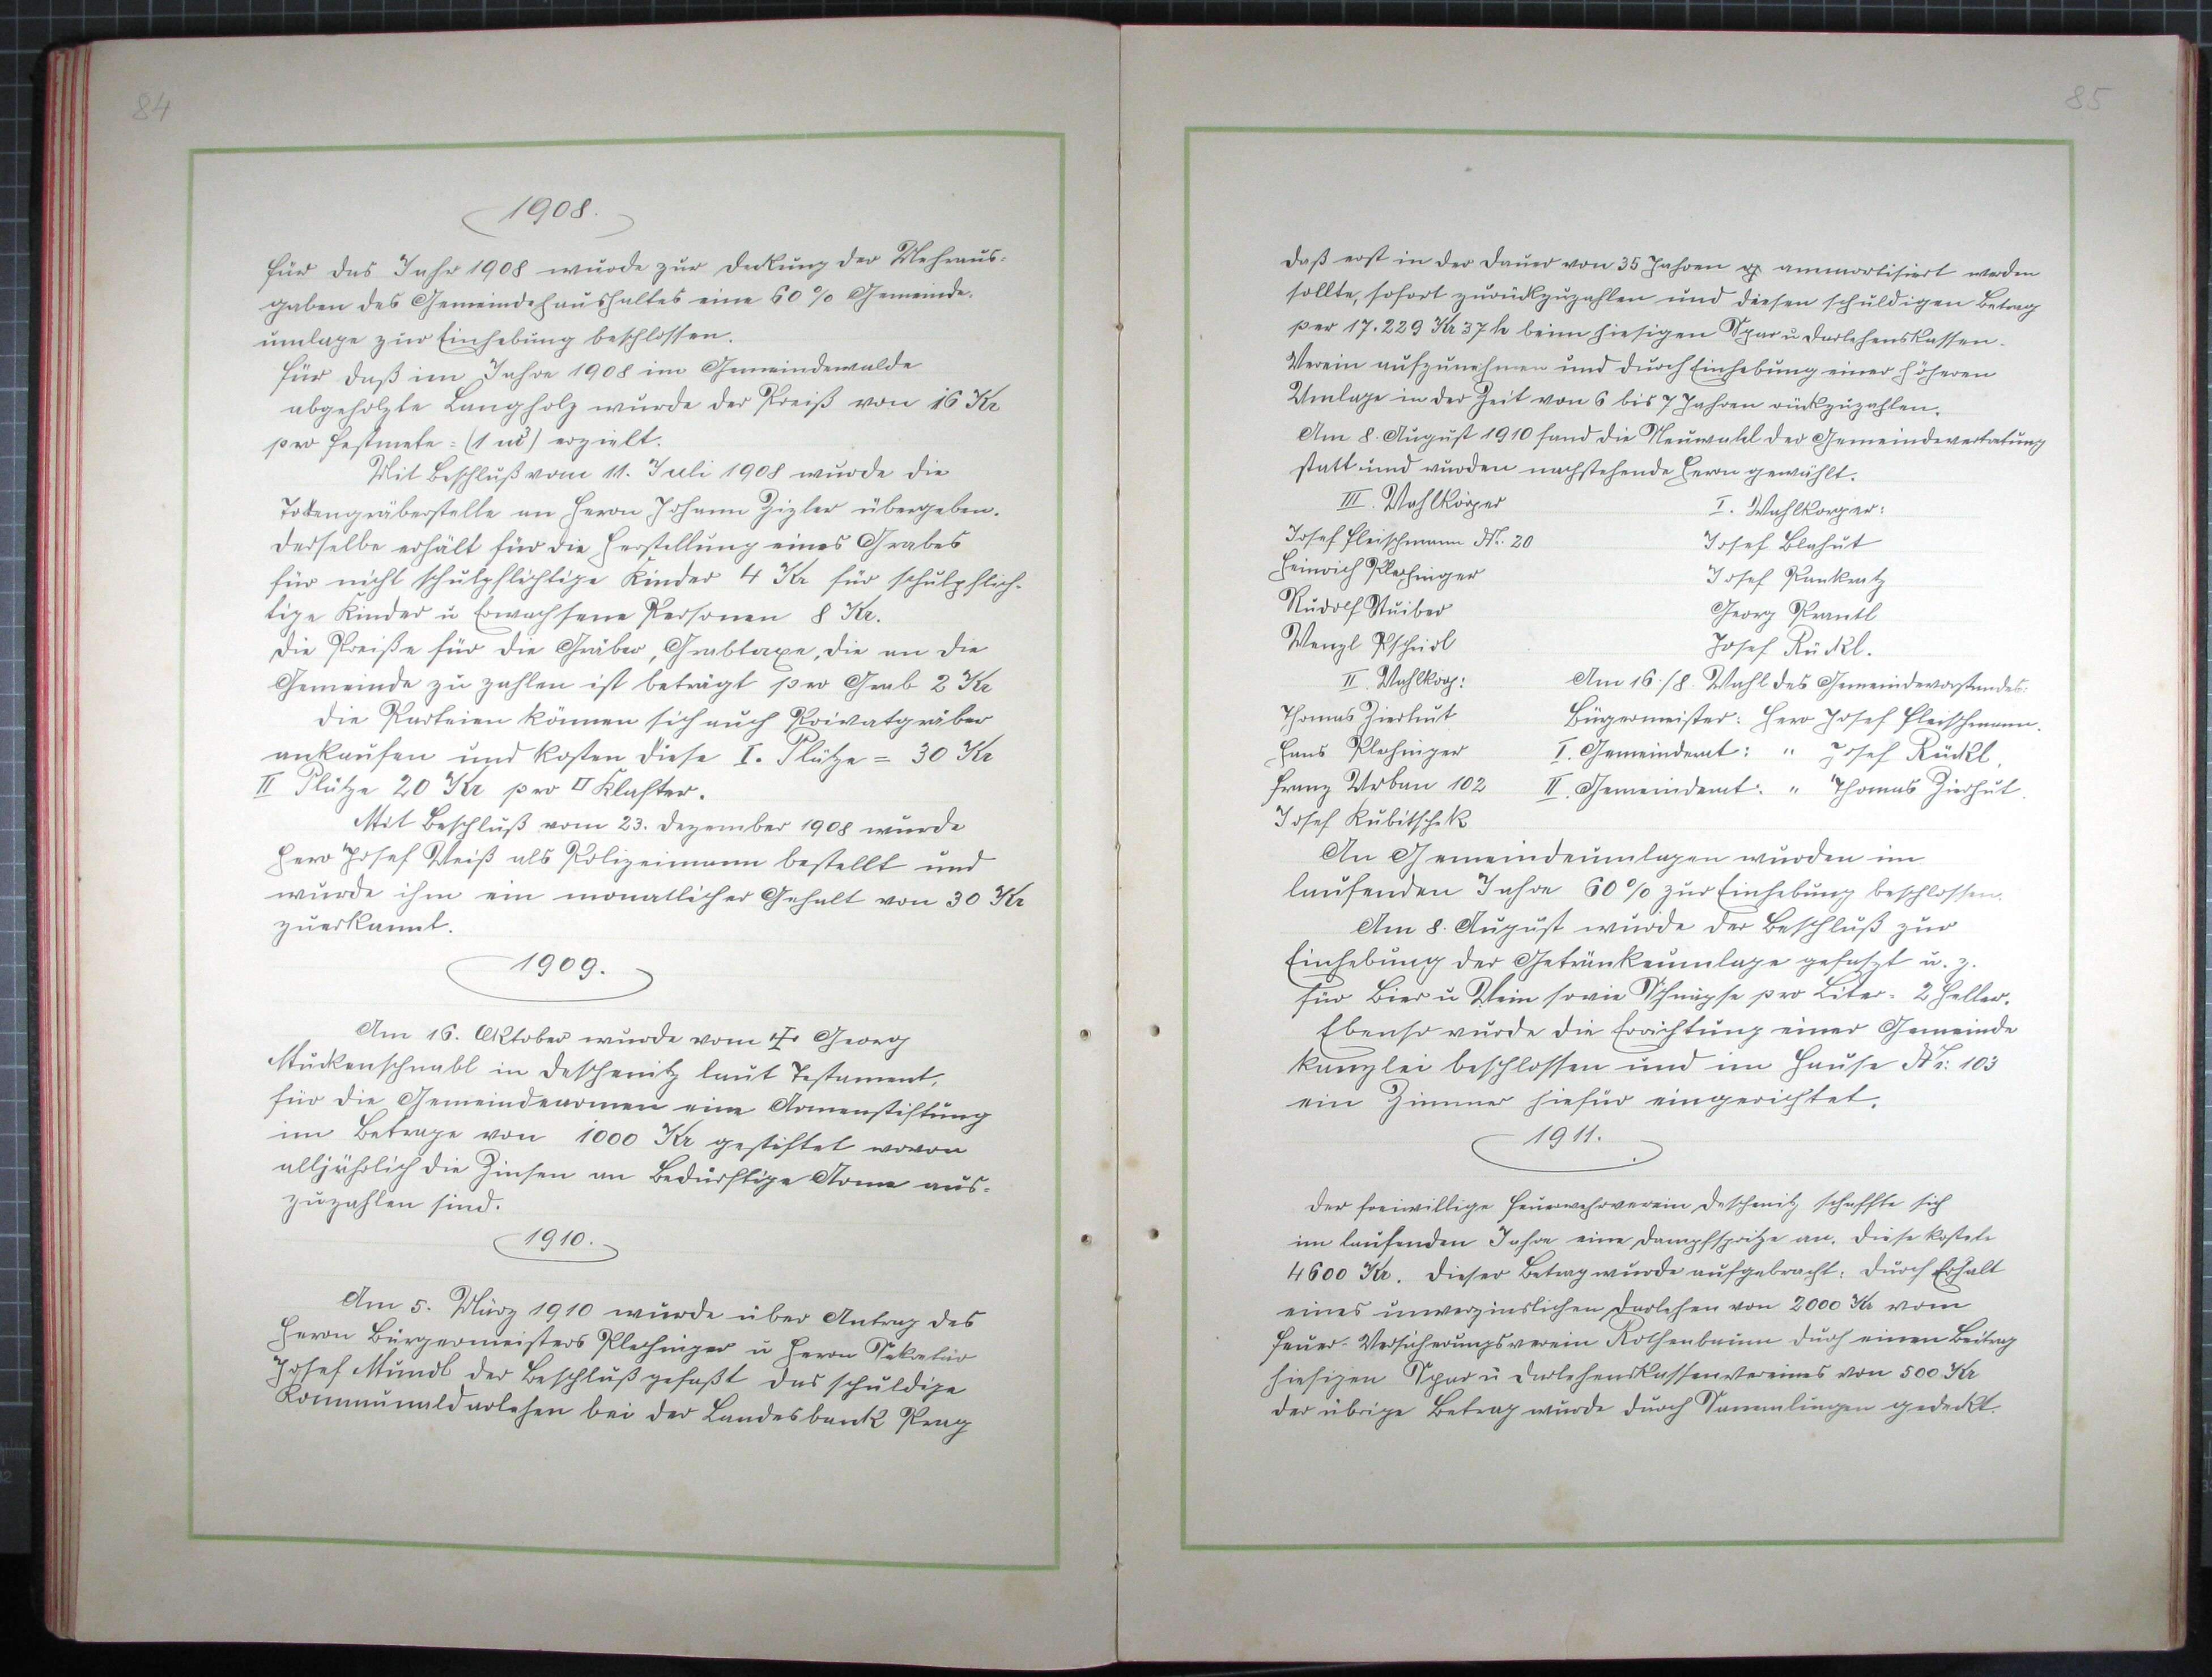 84
1908.
Für das Jahr 1908 wurde zur Deckung der Mehraus-
gaben des Gemeindehaushaltes eine 60 % Gemeinde-
umlage zur Einhebung beschlossen.
Für daß im Jahre 1908 im Gemeindewalde
abgeholzte Langholz wurde der Preiß von 16 Kr
pro Festmete = (1 m³) erzielt.
Mit Beschluß vom 11. Juli 1908 wurde die
Totengräberstelle an Herrn Johann Zizler übergeben.
Derselbe erhält für die Herstellung eines Grabes
für nicht schulpflichtige Kinder 4 Kr für schulpflich-
tige Kinder u Erwachsene Personen 8 Kr.
Die Preiße für die Gräber, Grabtaxe, die an die
Gemeinde zu zahlen ist beträgt pro Grab 2 Kr
Die Parteien können sich auch Privatgräber
ankaufen und kosten diese I. Plätze = 30 Kr
II Plätze 20 Kr pro □ Klafter.
Mit Beschluß vom 23. Dezember 1908 wurde
Herr Josef Weiß als Polizeimann bestellt und
wurde ihm ein monatlicher Gehalt von 30 Kr
zuerkannt.
1909.
Am 16. Oktober wurde vom Georg
Muckenschnabl in Deschenitz laut Testament,
für die Gemeindearmen eine Armenstiftung
im Betrage von 1000 Kr gestiftet wovon
alljährlich die Zinsen an Bedürftige Arme aus-
zuzahlen sind.
1910.
Am 5. März 1910 wurde über Antrag des
Herrn Bürgermeisters Plechinger u Herrn Sekretär
Josef Mundl der Beschluß gefaßt das schuldige
Kommunaldarlehen bei der Landesbank Prag
85
daß erst in der Dauer von 35 Jahren ammortisiert werden
sollte, sofort zurückzuzahlen und diesen schuldigen Betrag
per 17.229 Kr 37 h beim hiesigen Spar u Darlehenskassen-
Verein aufzunehmen und durch Einhebung einer höheren
Umlage in der Zeit von 6 bis 7 Jahren rückzuzahlen.
Am 8. August 1910 fand die Neuwahl der Gemeindevertretung
statt und wurden nachstehende Herrn gewählt.
III. Wahlkörper
Josef Fleischmann Nr. 20
Heinrich Plechinger
Rudolf Stuiber
Wenzl Pscheidl
II. Wahlkörp:
Thomas Zierhut
Hans Plechinger
Franz Urban 102
Josef Kubitschek
I. Wahlkörper:
Josef Blahut
Josef Pankratz
Georg Krantl
Josef Rückl.
Am 16./8. Wahl des Gemeindevorstandes:
Bürgermeister: Herr Josef Fleischmann.
I. Gemeinderat: " Josef Rückl.
II. Gemeinderat: " Thomas Zierhut.
An Gemeindeumlagen wurden im
laufenden Jahre 60 % zur Einhebung beschlossen.
Am 8. August wurde der Beschluß zur
Einhebung der Getränkeumlage gefaßt u. z.
für Bier u Wein sowie Schnäpse pro Liter = 2 Heller.
Ebenso wurde die Errichtung einer Gemeinde
kanzlei beschlossen und im Hause Nr: 103
ein Zimmer hiefür eingerichtet.
1911.
Der freiwillige Feuerwehrverein Deschenitz schaffte sich
im laufenden Jahre eine Dampfspritze an. Diese kostete
4600 Kr. Dieser Betrag wurde aufgebracht: durch Erhalt
eines unverzinslichen Darlehen von 2000 Kr vom
Feuer-Versicherungsverein Rothenbaum durch einen Beitrag
hiesigen Spar u Darlehenskassenvereines von 500 Kr
der übrige Betrag wurde durch Sammlungen gedeckt.